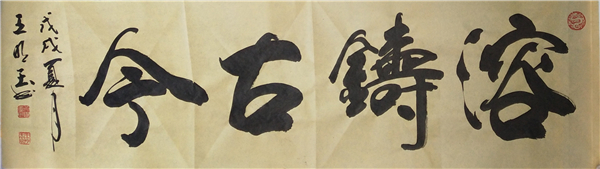 溶鑄古今
戊戌夏月
王明